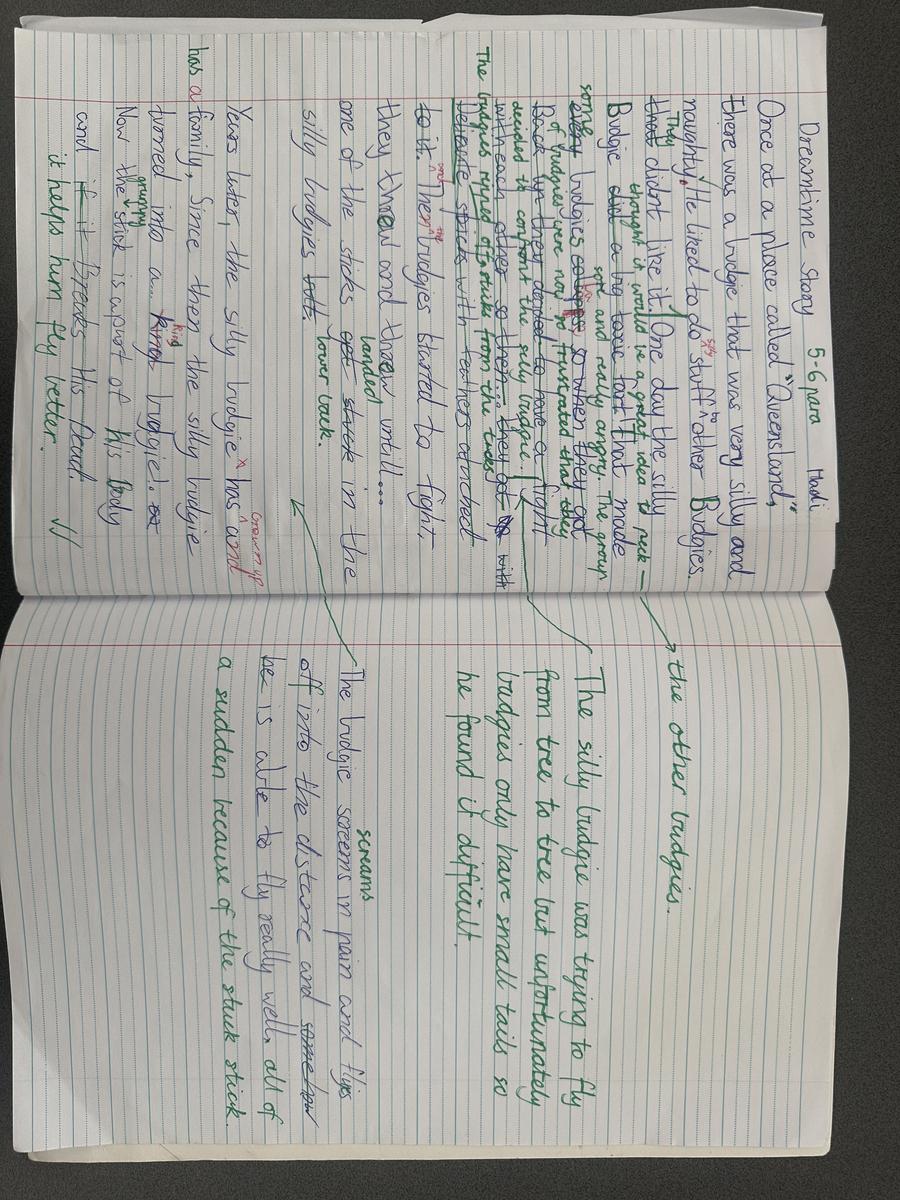 Dreamtime Story 5-6 para Hadi
Once at a place called "Queensland",
there was a budgie that was very silly and
naughty. He liked to do silly stuff to other Budgies.
They
that didnt like it. One day the silly
thought it would be a great idea to peck —
the other budgies.
Budgie did a big that made
sore and really angry. The group
some budgies so when they got
of budgies were now so frustrated that they
Back up they decided to have a fight
decided to confront the silly budgie.
The silly budgie was trying to fly
from tree to tree but unfortunately
budgies only have small tails so
he found it difficult.
with each other so then... they got with
The budgies ripped off sticks from the trees
sticks with feathers attached
to it. and Then the budgies started to fight,
they threw and threw until....
landed
one of the sticks got stuck in the
silly budgies lower back.
The budgie screems in pain and flys
screams
off into the distance and somehow
he is able to fly really well, all of
a sudden because of the stuck stick.
Years later, the silly budgie has grown up and
has a family, Since then the silly budgie
turned into a... kind budgie!.
Now the grumpy stick is apart of his Body
and it Breaks His
it helps him fly better.